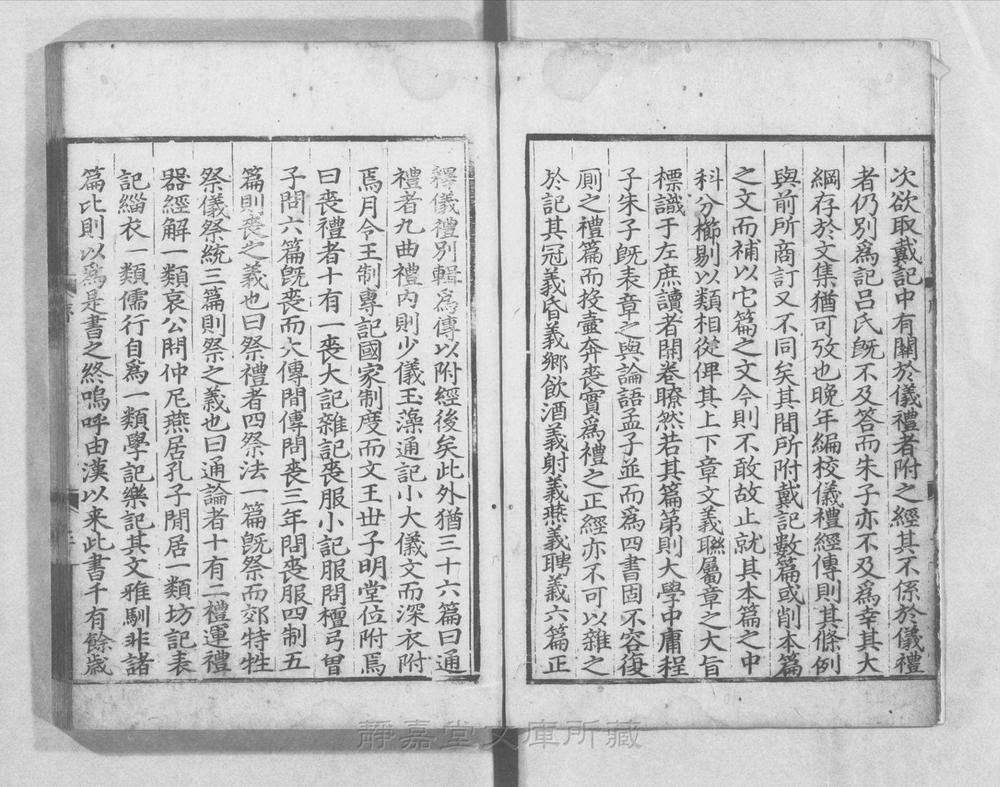 次欲取戴記中有關於儀禮者附之經其不係於儀禮
者仍別爲記吕氏旣不及答而朱子亦不及爲幸其大
綱存於文集猶可攷也晩年編校儀禮經傳則其條例
與前所商訂又不同矣其間所附戴記數篇或削本篇
之文而補以它篇之文今則不敢故止就其本篇之中
科分櫛剔以類相從俾其上下章文義聮屬章之大旨
標識于左庶讀者開卷瞭然若其篇第則大學中庸程
子朱子旣表章之與論語孟子並而爲四書固不容復
厠之禮篇而投壷奔喪實爲禮之正經亦不可以雜之
於記其冠義昏義鄉飲酒義射義燕義聘義六篇正
釋儀禮別輯爲傳以附經後矣此外猶三十六篇曰通
禮者九曲禮内則少儀玉藻通記小大儀文而深衣附
焉月令王制專記國家制度而文王世子明堂位附焉
曰喪禮者十有一喪大記雜記喪服小記服問檀弓曽
子問六篇旣喪而大傳間傳問喪三年問喪服四制五
篇則喪之義也曰祭禮者四祭法一篇旣祭而郊特牲
祭儀祭統三篇則祭之義也曰通論者十有二禮運禮
器經解一類哀公問仲尼燕居孔子閒居一類坊記表
記緇衣一類儒行自爲一類學記樂記其文雅馴非諸
篇比則以爲是書之終嗚呼由漢以来此書千有餘歳
靜嘉堂文庫所藏